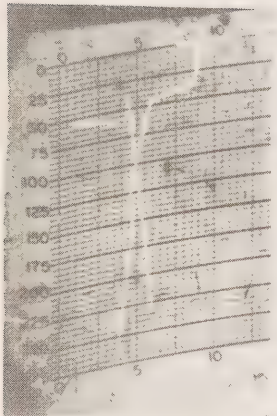 0 5 10
0
25
50
75
100
125
150
175
200
225
5 10